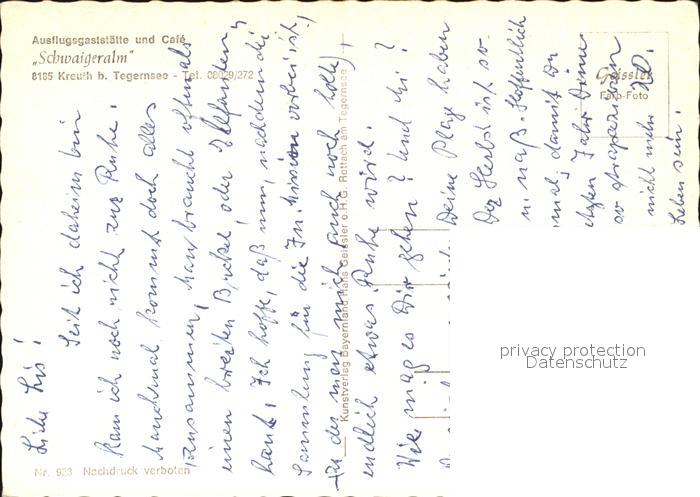 Ausflugsgaststätte und Café
„Schwaigeralm"
8185 Kreuth b. Tegernsee - Tel. 08029/272
Geissler
Farb-Foto
Liebe Lis!
Seit ich daheim bin
kam ich noch nicht zur Ruhe.
Manchmal kommt doch alles
zusammen, man braucht oftmals
einen breiten Buckel, oder Elefanten
haut. Ich hoffe, daß nun, nachdem die
Sammlung für die In. Mission vorbei ist,
(zu der man mich auch noch holte),
endlich etwas Ruhe wird.
Wie mag es Dir gehen? Und
Deine Plage haben
Der Herbst ist so
naß. Hoffentlich
mal, damit Du
Jahr Deine
so strapazieren
nicht mehr
Leben sein.
Kunstverlag Bayernland Hans Geissler o.H.G. Rottach am Tegernsee
Nr. 923 Nachdruck verboten
privacy protection
Datenschutz